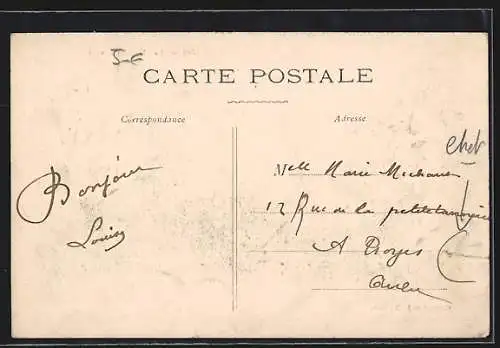 5-€
CARTE POSTALE
Correspondance
Adresse
Bonjour
Louise
Mell Marie Michaut
12 Rue de la petite tannerie
A Troyes
Aube